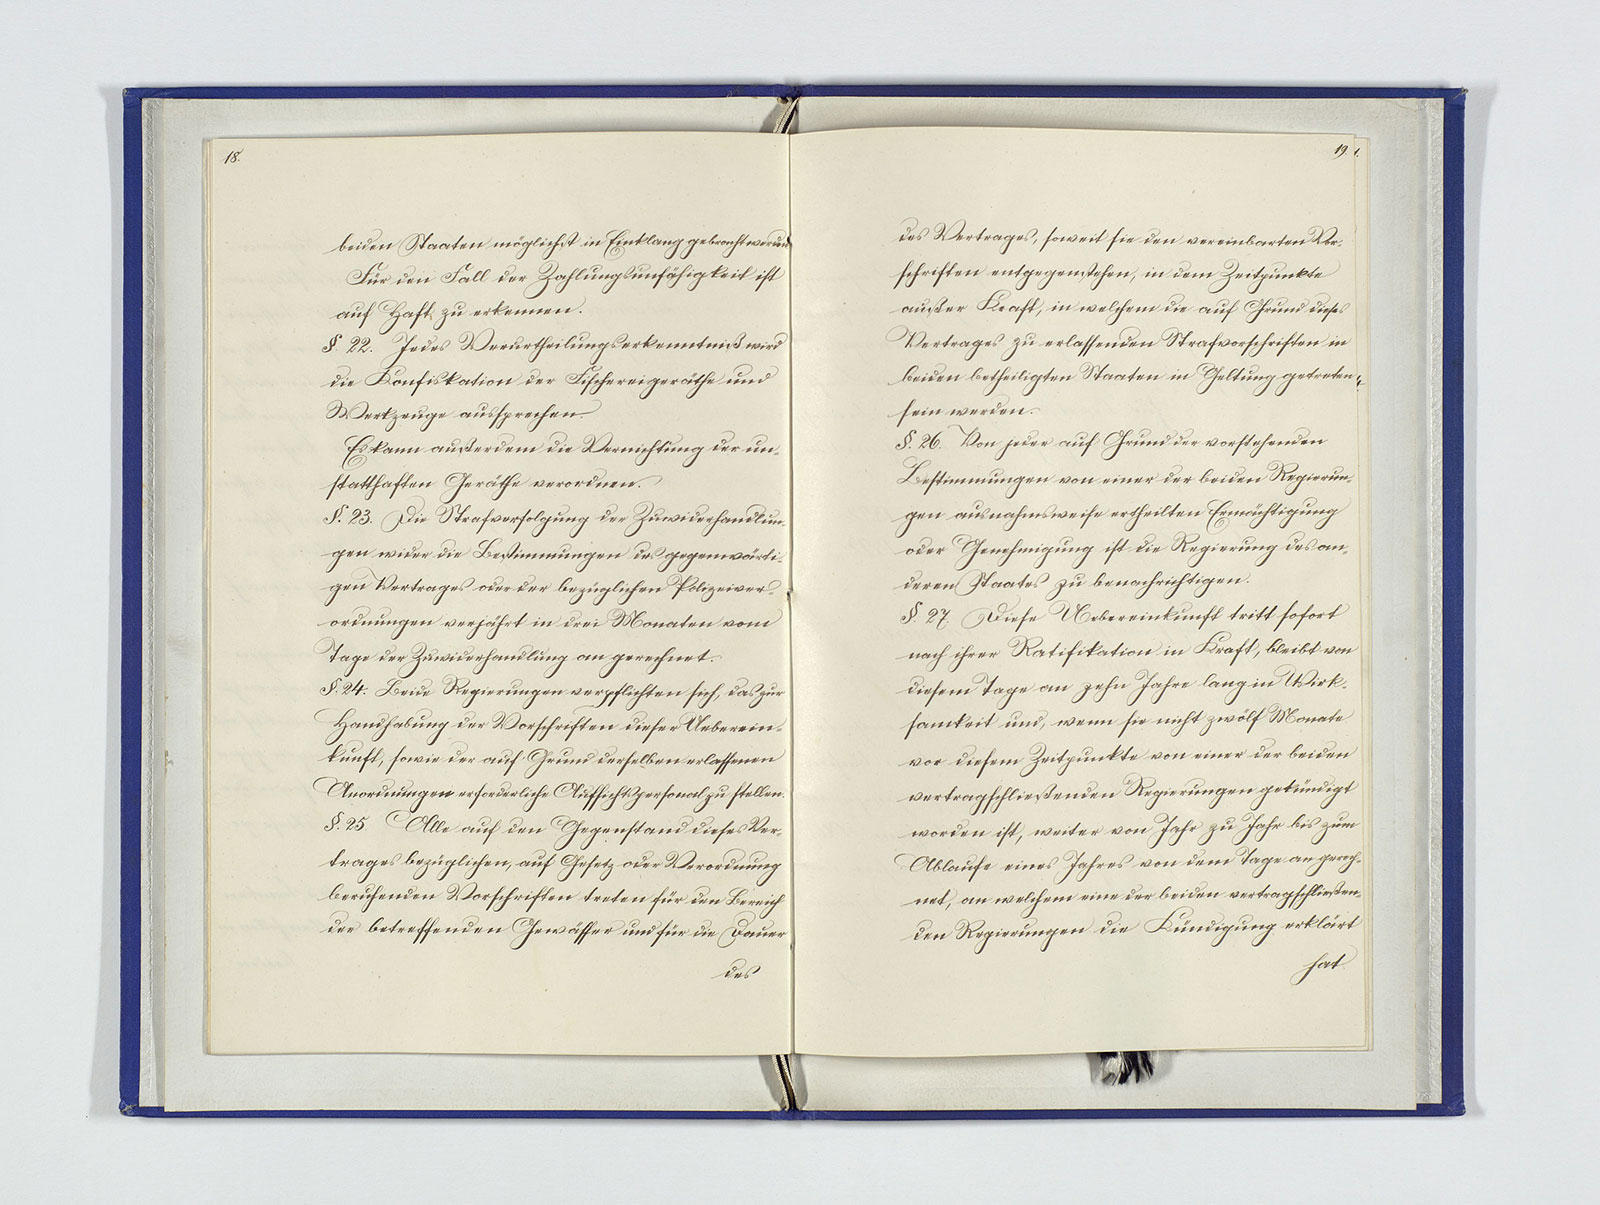 18.
beiden Staaten möglichst in Einklang gebracht werden.
Für den Fall der Zahlungsunfähigkeit ist
auf Haft zu erkennen.
§. 22. Jedes Verurtheilungserkenntniß wird
die Konfiskation der Fischereigeräthe und
Werkzeuge aussprechen.
Es kann außerdem die Vernichtung der un-
statthaften Geräthe verordnen.
§. 23. Die Strafverfolgung der Zuwiderhandlun-
gen wider die Bestimmungen des gegenwärti-
gen Vertrages oder der bezüglichen Polizeiver-
ordnungen verjährt in drei Monaten vom
Tage der Zuwiderhandlung an gerechnet.
§. 24. Beide Regierungen verpflichten sich, das zur
Handhabung der Vorschriften dieser Ueberein-
kunft, sowie der auf Grund derselben erlassenen
Anordnungen erforderliche Aufsichtspersonal zu stellen.
§. 25. Alle auf den Gegenstand dieses Ver-
trages bezüglichen, auf Gesetz oder Verordnung
beruhenden Vorschriften treten für den Bereich
der betreffenden Gewässer und für die Dauer
des
19.
des Vertrages, soweit sie den vereinbarten Vor-
schriften entgegenstehen, in dem Zeitpunkte
außer Kraft, in welchem die auf Grund dieses
Vertrages zu erlassenden Strafvorschriften in
beiden betheiligten Staaten in Geltung getreten
sein werden.
§. 26. Von jeder auf Grund der vorstehenden
Bestimmungen von einer der beiden Regierun-
gen ausnahmsweise ertheilten Ermächtigung
oder Genehmigung ist die Regierung des an-
deren Staates zu benachrichtigen.
§. 27. Diese Uebereinkunft tritt sofort
nach ihrer Ratifikation in Kraft, bleibt von
diesem Tage an zehn Jahre lang in Wirk-
samkeit und, wenn sie nicht zwölf Monate
vor diesem Zeitpunkte von einer der beiden
vertragschließenden Regierungen gekündigt
worden ist, weiter von Jahr zu Jahr bis zum
Ablaufe eines Jahres von dem Tage an gerech-
net, an welchem eine der beiden vertragschließen-
den Regierungen die Kündigung erklärt
hat.